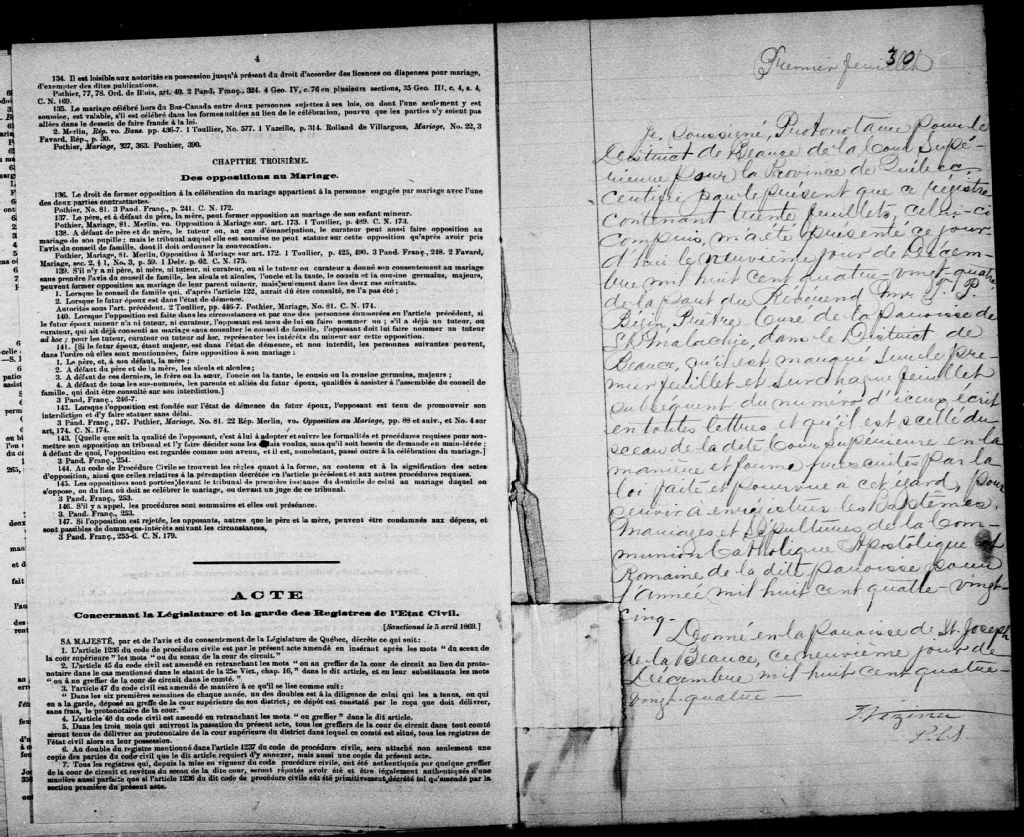 4
134. Il est loisible aux autorités en possession jusqu'à présent du droit d'accorder des licences ou dispenses pour mariage,
d'exempter des dites publications.
Pothier, 77, 78. Ord. de Blois, art. 40. 2 Pand. Franç., 324. 4 Geo. IV, c. 76 en plusieurs sections, 35 Geo. III, c, 4, s. 4,
C. N. 169.
135. Le mariage célébré hors du Bas-Canada entre deux personnes sujettes à ses lois, ou dont l'une seulement y est
soumise, est valable, s'il est célébré dans les formes usitées au lieu de la célébration, pourvu que les parties n'y soient pas
allées dans le dessein de faire fraude à la loi.
2. Merlin, Rép. vo. Bans. pp. 436-7. 1 Toullier, No. 577. 1 Vazeille, p. 314. Rolland de Villargues, Mariage, No. 22, 3
Favard, Rép., p. 30.
Pothier, Mariage, 327, 363. Pouhier, 390.
CHAPITRE TROISIÈME.
Des oppositions au Mariage.
136. Le droit de former opposition à la célébration du mariage appartient à la personne engagée par mariage avec l'une
des deux parties contractantes.
Pothier, No. 81. 3 Pand. Franç., p. 241. C. N. 172.
137. Le père, et à défaut du père, la mère, peut former opposition au mariage de son enfant mineur.
Pothier, Mariage, 81. Merlin. vo. Opposition à Mariage sur art. 173. 1 Toullier, p. 489. C. N. 173.
138. A défaut de père et de mère, le tuteur ou, au cas d'émancipation, le curateur peut aussi faire opposition au
mariage de son pupille; mais le tribunal auquel elle est soumise ne peut statuer sur cette opposition qu'après avoir pris
l'avis du conseil de famille, dont il doit ordonner la convocation.
Pothier, Mariage, 81. Merlin, Opposition à Mariage sur art. 172. 1 Toullier, p. 425, 490. 3 Pand. Franç., 248. 2 Favard,
Mariage, sec. 2. § 1, No. 3, p. 59. 1 Delv. p. 62. C. N. 175.
139. S'il n'y a ni père, ni mère, ni tuteur, ni curateur, ou si le tuteur ou curateur a donné son consentement au mariage
sans prendre l'avis du conseil de famille, les aïeuls et aïeules, l'oncle et la tante, le cousin et la cousine germains, majeurs,
peuvent former opposition au mariage de leur parent mineur, mais seulement dans les deux cas suivants.
1. Lorsque le conseil de famille qui, d'après l'article 122, aurait dû être consulté, ne l'a pas été;
2. Lorsque le futur époux est dans l'état de démence.
Autorités sous l'art. précédent. 2 Toullier, pp. 446-7. Pothier, Mariage, No. 81. C. N. 174.
140. Lorsque opposition est faite dans les circonstances et par une des personnes énumérées en l'article précédent, si
le futur époux mineur n'a ni tuteur, ni curateur, l'opposant est tenu de lui en faire nommer un; s'il a déjà un tuteur, ou
curateur, qui ait déjà consenti au mariage sans consulter le conseil de famille, l'opposant doit lui faire nommer un tuteur
ad hoc; pour les tuteur, curateur ou tuteur ad hoc, représenter les intérêts du mineur sur cette opposition.
141. [Si le futur époux, étant majeur, est dans l'état de démence, et non interdit, les personnes suivantes peuvent,
dans l'ordre où elles sont mentionnées, faire opposition à son mariage:
1. Le père, et, à son défaut, la mère;
2. A défaut du père et de la mère, les aïeuls et aïeules;
3. A défaut de ces derniers, le frère ou la sœur, l'oncle ou la tante, le cousin ou la cousine germains, majeurs;
4. A défaut de tous les sus-nommés, les parents et alliés du futur époux, qualifiés à assister à l'assemblée du conseil de
famille, qui doit être consulté sur son interdiction.]
3 Pand. Franç., 246-7.
142. Lorsque l'opposition est fondée sur l'état de démence du futur époux, l'opposant est tenu de promouvoir son
interdiction et d'y faire statuer sans délai.
3 Pand. Franç., 247. Pothier, Mariage, No. 81. 22 Rép. Merlin, vo. Opposition au Mariage, pp. 88 et suiv., et No. 4 sur
art, 174. C. N. 174.
143. [Quelle que soit la qualité de l'opposant, c'est à lui à adopter et suivre les formalités et procédures requises pour sou-
mettre son opposition au tribunal et l'y faire décider sous les délais voulus, sans qu'il soit besoin de demande en main-levée;
à défaut de quoi, l'opposition est regardée comme non avenu, et il est, nonobstant, passé outre à la célébration du mariage.]
3 Pand. Franç., 254.
144. Au code de Procédure Civile se trouvent les règles quant à la forme, au contenu et à la signification des actes
d'opposition, ainsi que celles relatives à la péremption décrétée en l'article précédent et aux autres procédures requises.
145. Les oppositions sont portées devant le tribunal de première instance du domicile de celui au mariage duquel on
s'oppose, ou du lieu où doit se célébrer le mariage, ou devant un juge de ce tribunal.
3 Pand. Franç., 253.
146. S'il y a appel, les procédures sont sommaires et elles ont préséance.
3 Pand. Franç., 253.
147. Si l'opposition est rejetée, les opposants, autres que le père et la mère, peuvent être condamnés aux dépens, et
sont passibles de dommages-intérêts suivant les circonstances,
3 Pand. Franç., 255-6. C. N. 179.
ACTE
Concernant la Législature et la garde des Registres de l'Etat Civil.
[Sanctionné le 5 avril 1869.]
SA MAJESTÉ, par et de l'avis et du consentement de la Législature de Québec, décrète ce qui suit:
1. L'article 1236 du code de procédure civile est par le présent acte amendé en insérant après les mots "du sceau de
la cour supérieure" les mots "ou du sceau de la cour de circuit."
2. L'article 45 du code civil est amendé en retranchant les mots "ou au greffier de la cour de circuit au lieu du proto-
notaire dans le cas mentionné dans le statut de la 25e Vict., chap. 16," dans le dit article, et en leur substituants les mots
"ou à un greffier de la cour de circuit dans le comté."
3. l'article 47 du code civil est amendé de manière à ce qu'il se lise comme suit:
"Dans les six premières semaines de chaque année, un des doubles est à la diligence de celui qui les a tenus, ou qui
en a la garde, déposé au greffe de la cour supérieure de son district; ce dépôt est constaté par le reçu que doit délivrer,
sans frais, le protonotaire de la cour."
4. L'article 48 du code civil est amendé en retranchant les mots "ou greffier" dans le dit article.
5. Dans les trois mois qui suivront la passation du présent acte, tous les greffiers de la cour de circuit dans tout comté
seront tenus de délivrer au protonotaire de la cour supérieure du district dans lequel ce comté est situé, tous les registres de
l'Etat civil alors en leur possession.
6. Au double du registre mentionné dans l'article 1237 du code de procédure civile, sera attaché non seulement une
copie des parties du code civil que le dit article requiert d'y annexer, mais aussi une copie du présent acte.
7. Tous les registres qui, depuis la mise en vigueur du code procédure civile, ont été authentiqués par quelque greffier
de la cour de circuit et revêtus du sceau de la dite cour, seront réputés avoir été et être légalement authentiqués d'une
manière aussi parfaite que si l'article 1236 du dit code de procédure civile eût été primitivement décrété tel qu'amendé par la
section première du présent acte.
30
Premier feuillet
Je, soussigné, Protonotaire pour le
District de Beauce de la Cour Supé-
rieure pour la Province de Québec,
Certifie par le présent que ce registre
contenant trente feuillets, celui-ci
compris, m'a été présenté ce jour-
d'hui le neuvième jour de Décem-
bre mil huit cent quatre-vingt-quatre
de la part du Révérend Mr. J. P.
Bégin, Prêtre, Curé de la paroisse de
St. Malachie, dans le District de
Beauce, qu'il est marqué sur le pre-
mier feuillet et sur chaque feuillet
subséquent du numéro d'iceux, écrit
en toutes lettres et qu'il est scellé du
sceau de la dite Cour Supérieure en la
manière et forme prescrites par la
loi faite et pourvue à cet égard, pour
servir à enregistrer les Baptêmes,
Mariages et Sépultures de la Com-
munion Catholique Apostolique et
Romaine de la dite paroisse pour
l'année mil huit cent quatre-vingt-
cinq.
Donné en la paroisse de St. Joseph
de la Beauce, ce neuvième jour de
Décembre mil huit cent quatre-
vingt-quatre
Vézina
P.C.S.